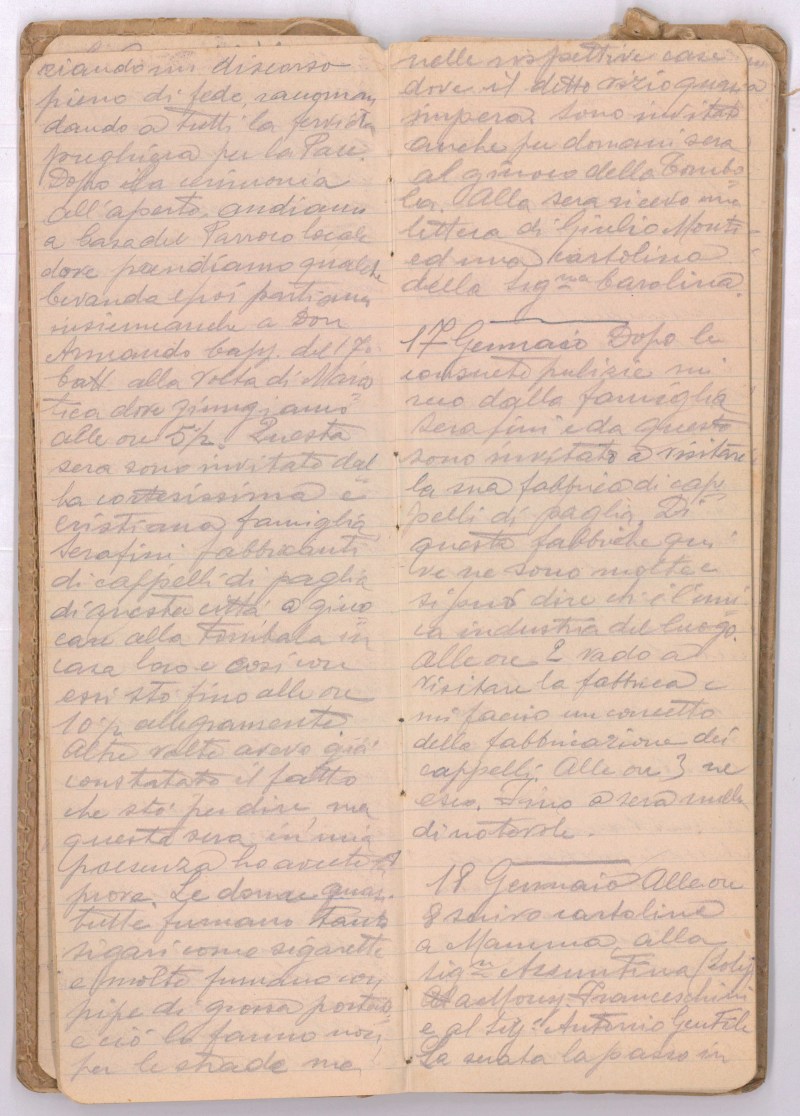 ziando un discorso
pieno di fede, raccoman
dando a tutti la fervida
preghiera per la Pace.
Dopo la cerimonia
all'aperto andiamo
a Casa del Parroco locale
dove prendiamo qualche
bevanda e poi partiamo
insieme anche a Don
Armando Capp. del 170
batt. alla volta di Maro
tica dove giungiamo
alle ore 5 1/2. Questa
sera sono invitato dal
la cortesissima e
cristiana famiglia
Serafini fabbricanti
di cappelli di paglia
di questa città a gino
care alla Tombala in
casa loro e così con
essi sto fino alle ore
10 1/2 allegramente
Altre volte avevo già
constatato il fatto
che stò per dire ma
questa sera in mia
presenza ho avuto la
prova. Le donne quasi
tutte fumano tanto
sigari come sigarette
e molte fumano con
pipe di grossa portata
e ciò lo fanno non
per le strade ma
nelle rispettive case
dove il detto vizio
impera. Sono invitato
anche per domani sera
al giuoco della Tombo
la. Alla sera ricevo una
lettera di Giulio Monti
ed una cartolina
della Sig.na Carolina.
17 Gennaio Dopo le
consuete pulizie mi
reco dalla famiglia
Serafini e da questo
sono invitato a visitare
la sua fabbrica di cap
pelli di paglia. Di
queste fabbriche qui
ve ne sono molte e
si può dire ch'è l'uni
ca industria del luogo.
Alle ore 2 vado a
visitare la fabbrica e
mi faccio un concetto
della fabbricazione dei
cappelli. Alle ore 3 ne
esco. Fino a sera nulla
di notevole.
18 Gennaio Alle ore
8 scrivo cartoline
a Mamma, alla
Sig.na Assuntina
a Mons. Franceschini
e al Sig. Antonio Gentile
La serata la passo in